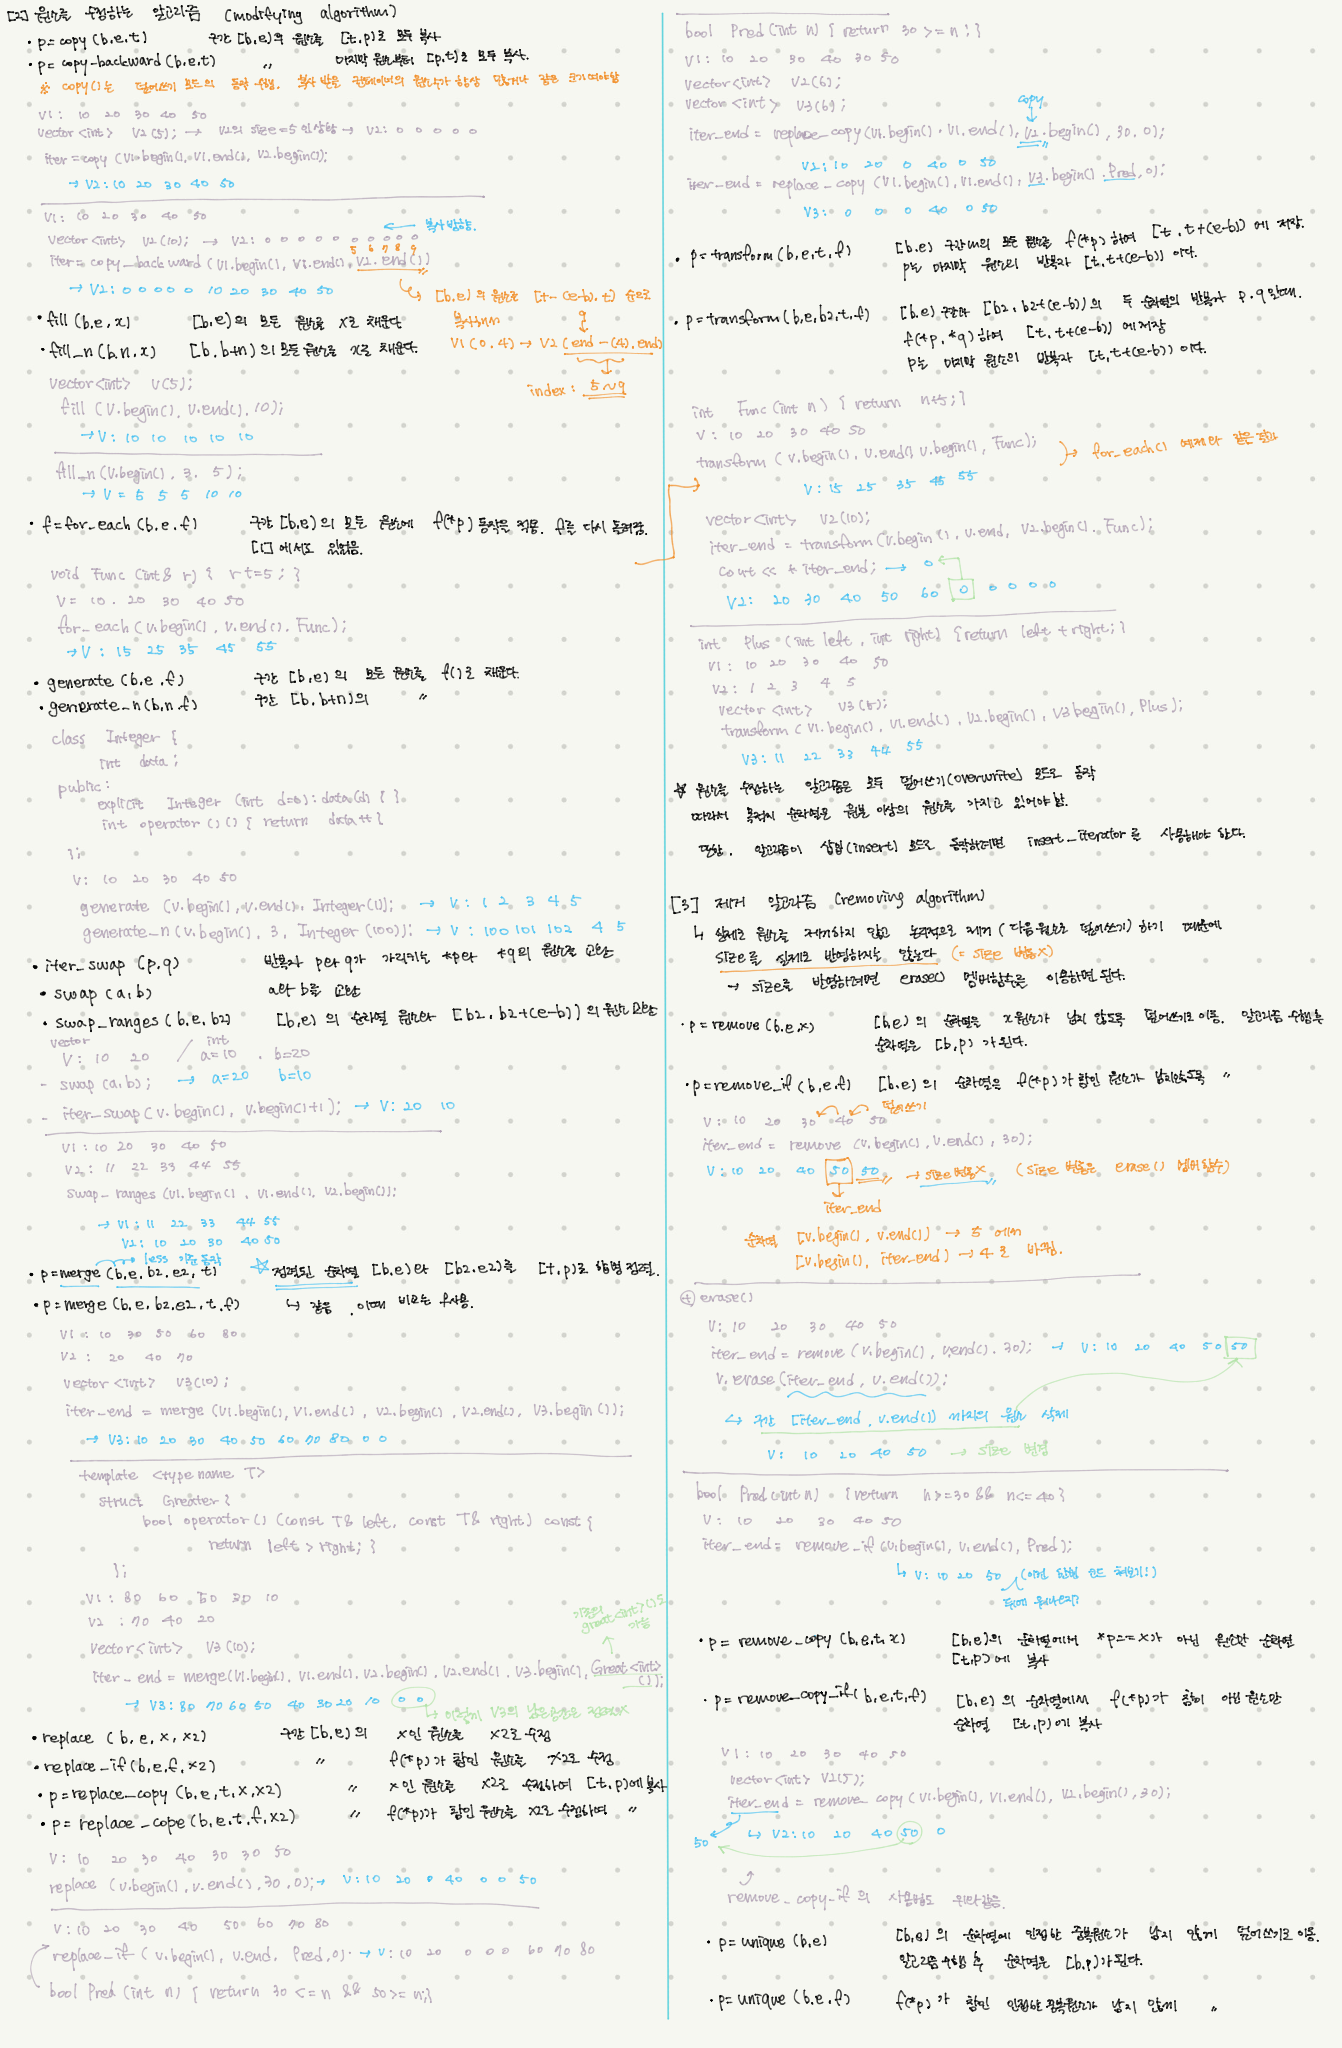 [2] 원소를 수정하는 알고리즘 (modifying algorithm)
• p=copy(b,e,t) 구간 [b,e)의 원소를 [t,p)로 모두 복사
• p=copy-backward(b,e,t) 〃 마지막 원소부터 [p,t)로 모두 복사.
※ copy()는 덮어쓰기 모드의 동작 수행. 복사 받을 컨테이너의 원소수가 항상 많거나 같은 크기여야함
V1: 10 20 30 40 50
vector<int> V2(5); → V2의 size=5 인상태 → V2: 0 0 0 0 0
iter=copy(V1.begin(), V1.end(), V2.begin());
→ V2: 10 20 30 40 50
V1: 10 20 30 40 50
← 복사방향.
vector<int> V2(10); → V2: 0 0 0 0 0 0 0 0 0 0
5 6 7 8 9
iter=copy_backward(V1.begin(), V1.end(), V2.end())
→ V2: 0 0 0 0 0 10 20 30 40 50
[b,e)의 원소를 [t-(e-b), t) 순으로
복사해서 9
V1(0,4) → V2(end-(4), end)
index: 5~9
• fill(b,e,x) [b,e)의 모든 원소를 x로 채운다
• fill_n(b,n,x) [b,b+n)의 모든 원소를 x로 채운다.
vector<int> V(5);
fill(V.begin(), V.end(), 10);
→ V: 10 10 10 10 10
fill_n(V.begin(), 3, 5);
→ V = 5 5 5 10 10
• f=for_each(b,e,f) 구간 [b,e)의 모든 원소에 f(*p) 동작을 적용. f를 다시 돌려줌.
[1]에서도 있었음.
void Func(int& r) { r+=5; }
V= 10. 20 30 40 50
for_each(V.begin(), V.end(), Func);
→ V: 15 25 35 45 55
• generate(b,e,f) 구간 [b,e)의 모든 원소를 f()로 채운다.
• generate_n(b,n,f) 구간 [b,b+n)의 〃
class Integer {
int data;
public:
explicit Integer(int d=0):data(d) { }
int operator()() { return data++ }
};
V: 10 20 30 40 50
generate(V.begin(), V.end(), Integer(1)); → V: 1 2 3 4 5
generate_n(V.begin(), 3, Integer(100)); → V: 100 101 102 4 5
• iter_swap(p,q) 반복자 p와 q가 가리키는 *p와 *q의 원소를 교환
• swap(a,b) a와 b를 교환
• swap_ranges(b,e,b2) [b,e)의 순차열 원소와 [b2, b2+(e-b))의 원소 교환
vector int
V: 10 20 / a=10 . b=20
- swap(a,b); → a=20 b=10
- iter_swap(V.begin(), V.begin()+1); → V: 20 10
V1: 10 20 30 40 50
V2: 11 22 33 44 55
swap_ranges(V1.begin(), V1.end(), V2.begin());
→ V1: 11 22 33 44 55
V2: 10 20 30 40 50
less 기준 동작
• p=merge(b,e,b2,e2,t) ☆ 정렬된 순차열 [b,e)와 [b2,e2)를 [t,p)로 합병 정렬.
• p=merge(b,e,b2,e2,t,f) ↳ 같음. 이때 비교는 f사용.
V1: 10 30 50 60 80
V2: 20 40 70
vector<int> V3(10);
iter_end = merge(V1.begin(), V1.end(), V2.begin(), V2.end(), V3.begin());
→ V3: 10 20 30 40 50 60 70 80 0 0
template <typename T>
struct Greater {
bool operator()(const T& left, const T& right) const {
return left > right; }
};
V1: 80 60 50 30 10
V2: 70 40 20
기존의 great<int>()도 가능
vector<int> V3(10);
iter_end = merge(V1.begin(), V1.end(), V2.begin(), V2.end(), V3.begin(), Great<int>());
→ V3: 80 70 60 50 40 30 20 10 0 0
↳ 이렇게 V3의 남은공간은 정렬X
• replace(b,e,x,x2) 구간 [b,e)의 x인 원소를 x2로 수정
• replace_if(b,e,f,x2) 〃 f(*p)가 참인 원소를 x2로 수정
• p=replace_copy(b,e,t,x,x2) 〃 x인 원소를 x2로 수정하여 [t,p)에 복사
• p=replace_cope(b,e,t,f,x2) 〃 f(*p)가 참인 원소를 x2로 수정하여 〃
V: 10 20 30 40 30 30 50
replace(V.begin(), V.end(), 30, 0); → V: 10 20 0 40 0 0 50
V: 10 20 30 40 50 60 70 80
replace_if(V.begin(), V.end, Pred, 0). → V: 10 20 0 0 0 60 70 80
bool Pred(int n) { return 30 <= n && 50 >= n; }
bool Pred(int n) { return 30 >= n; }
V1: 10 20 30 40 30 50
vector<int> V2(6);
vector<int> V3(6);
copy
iter_end = replace_copy(V1.begin(), V1.end(), V2.begin(), 30, 0);
V2: 10 20 0 40 0 50
iter_end = replace_copy(V1.begin(), V1.end(), V3.begin(), Pred, 0);
V3: 0 0 0 40 0 50
• p=transform(b,e,t,f) [b,e) 구간의 모든 원소를 f(*p)하여 [t, t+(e-b))에 저장.
p는 마지막 원소의 반복자 [t, t+(e-b))이다.
• p=transform(b,e,b2,t,f) [b,e) 구간과 [b2, b2+(e-b))의 두 순차열의 반복자 p, q일때.
f(*p, *q)하여 [t, t+(e-b))에 저장
p는 마지막 원소의 반복자 [t, t+(e-b))이다.
int Func(int n) { return n+5; }
V: 10 20 30 40 50
transform(V.begin(), V.end(), V.begin(), Func); → for_each() 예제와 같은 결과
V: 15 25 35 45 55
vector<int> V2(10);
iter_end = transform(V.begin(), V.end, V2.begin(), Func);
cout << *iter_end; → 0
V2: 20 30 40 50 60 0 0 0 0 0
int Plus(int left, int right) { return left + right; }
V1: 10 20 30 40 50
V2: 1 2 3 4 5
vector<int> V3(5);
transform(V1.begin(), V1.end(), V2.begin(), V3.begin(), Plus);
V3: 11 22 33 44 55
☆ 원소를 수정하는 알고리즘은 모두 덮어쓰기(overwrite) 모드로 동작
따라서 목적지 순차열은 원본 이상의 원소를 가지고 있어야 함.
만약, 알고리즘이 삽입(insert) 모드로 동작하려면 insert_iterator를 사용해야 한다.
[3] 제거 알고리즘 (removing algorithm)
↳ 실제로 원소를 제거하지 않고 논리적으로 제거(다음원소로 덮어쓰기)하기 때문에
size를 실제로 반영하지는 않는다 (= size 변동X)
→ size를 반영하려면 erase() 멤버함수를 이용하면 된다.
• p=remove(b,e,x) [b,e)의 순차열을 x원소가 남지 않도록 덮어쓰기로 이동. 알고리즘 수행후
순차열은 [b,p)가 된다.
• p=remove_if(b,e,f) [b,e)의 순차열을 f(*p)가 참인 원소가 남지않도록 〃
덮어쓰기
V: 10 20 30 40 50
iter_end = remove(V.begin(), V.end(), 30);
V: 10 20 40 50 50 → size변동X (size 변동은 erase() 멤버함수)
iter_end
순차열 [V.begin(), V.end()) → 5에서
[V.begin(), iter_end) → 4로 바뀜.
⊕ erase()
V: 10 20 30 40 50
iter_end = remove(V.begin(), V.end(), 30); → V: 10 20 40 50 50
V.erase(iter_end, V.end());
↳ 구간 [iter_end, V.end()) 까지의 원소 삭제
V: 10 20 40 50 → size 변경
bool Pred(int n) { return n>=30 && n<=40 }
V: 10 20 30 40 50
iter_end = remove_if(V.begin(), V.end(), Pred);
↳ V: 10 20 50
• p=remove_copy(b,e,t,x) [b,e)의 순차열에서 *p==x가 아닌 원소만 순차열
[t,p)에 복사
• p=remove_copy_if(b,e,t,f) [b,e)의 순차열에서 f(*p)가 참이 아닌 원소만
순차열 [t,p)에 복사
V1: 10 20 30 40 50
vector<int> V2(5);
iter_end = remove_copy(V1.begin(), V1.end(), V2.begin(), 30);
50 ↳ V2: 10 20 40 50 0
remove_copy_if의 사용법도 위와같음.
• p=unique(b,e) [b,e)의 순차열에 인접한 중복원소가 남지 않게 덮어쓰기로 이동.
알고리즘 수행 후 순차열은 [b,p)가 된다.
• p=unique(b,e,f) f(*p)가 참인 인접한 중복원소가 남지 않게 〃